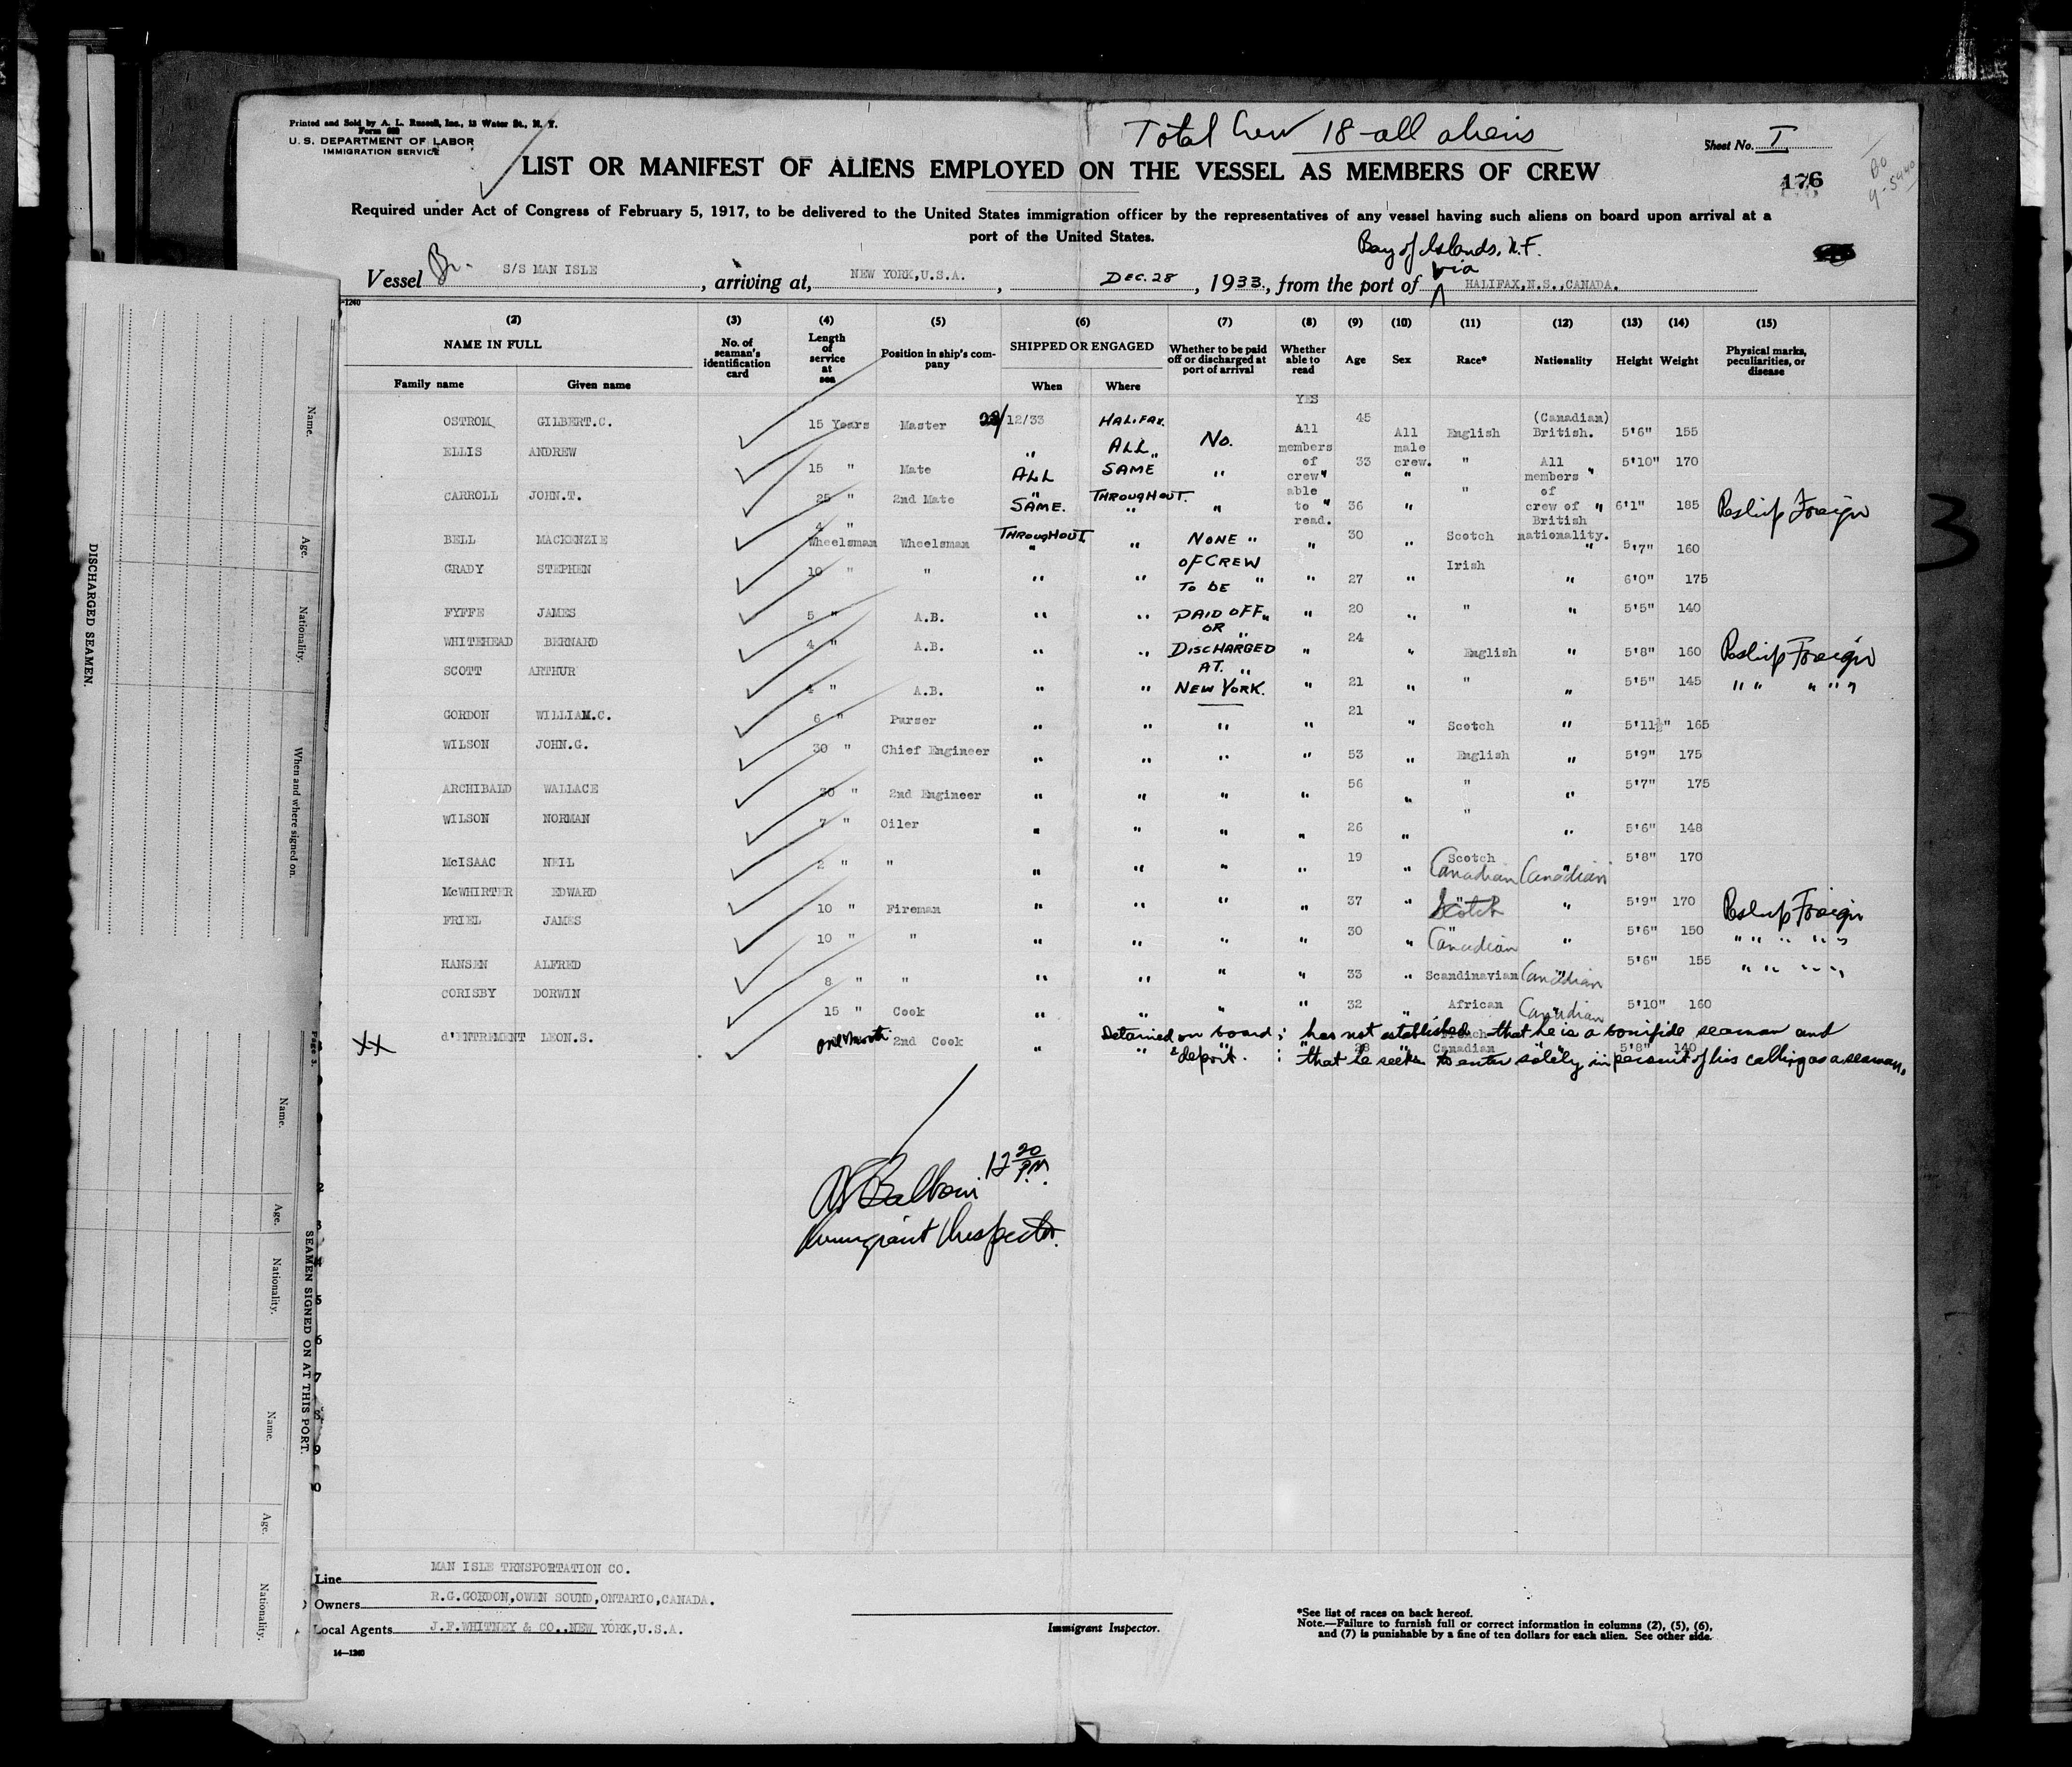 Printed and Sold by A. L. Russell, Inc., 13 Water St., N. Y.
Form 689
U. S. DEPARTMENT OF LABOR
IMMIGRATION SERVICE
Total Crew 18 - all aliens
Sheet No. I
LIST OR MANIFEST OF ALIENS EMPLOYED ON THE VESSEL AS MEMBERS OF CREW
176
Required under Act of Congress of February 5, 1917, to be delivered to the United States immigration officer by the representatives of any vessel having such aliens on board upon arrival at a
port of the United States.
Bay of Islands, N.F.
via
Vessel Br. S/S MAN ISLE, arriving at, NEW YORK,U.S.A., DEC. 28, 1933., from the port of HALIFAX,N.S.,CANADA.
(2) (3) (4) (5) (6) (7) (8) (9) (10) (11) (12) (13) (14) (15)
NAME IN FULL No. of seaman's identification card Length of service at sea Position in ship's company SHIPPED OR ENGAGED Whether to be paid off or discharged at port of arrival Whether able to read Age Sex Race* Nationality Height Weight Physical marks, peculiarities, or disease
Family name Given name When Where
YES
OSTROM GILBERT.C. 15 Years Master 12/33 HALIFAX. No. All 45 All male crew. English (Canadian) British. 5'6" 155
ELLIS ANDREW 15 " Mate " ALL " SAME " members of crew " 33 " " All members " 5'10" 170
CARROLL JOHN.T. 25 " 2nd Mate ALL " SAME. THROUGHOUT. " " able to " read. 36 " " of crew of " British nationality. 6'1" 185 Reship Foreign
BELL MACKENZIE 4 " Wheelsman Wheelsman THROUGHOUT " " NONE " " 30 " Scotch " 5'7" 160
GRADY STEPHEN 10 " " " " OF CREW TO BE " " 27 " Irish " 6'0" 175
FYFFE JAMES 5 " A.B. " " PAID OFF " OR " 20 " " " 5'5" 140
WHITEHEAD BERNARD 4 " A.B. " " DISCHARGED " " 24 " English " 5'8" 160 Reship Foreign
SCOTT ARTHUR 4 " A.B. " " AT. " NEW YORK. " 21 " " " 5'5" 145 " " " " "
GORDON WILLIAM.C. 6 " Purser " " " " 21 " Scotch " 5'11½" 165
WILSON JOHN.G. 30 " Chief Engineer " " " " 53 " English " 5'9" 175
ARCHIBALD WALLACE 30 " 2nd Engineer " " " " 56 " " " 5'7" 175
WILSON NORMAN 7 " Oiler " " " " 26 " " " 5'6" 148
McISAAC NEIL 2 " " " " " " 19 " Scotch Canadian " Canadian 5'8" 170
McWHIRTER EDWARD 10 " Fireman " " " " 37 " " Scotch " 5'9" 170 Reship Foreign
FRIEL JAMES 10 " " " " " " 30 " " Canadian " 5'6" 150 " " " " "
HANSEN ALFRED 8 " " " " " " 33 " Scandinavian " Canadian 5'6" 155 " " " "
CORISBY DORWIN 15 " Cook " " " " 32 " African " Canadian 5'10" 160
XX d'ENTREMENT LEON.S. one month 2nd Cook " " " " 28 " French Canadian " 5'8" 140
Detained on board ; has not established that he is a bonifide seaman and
& deport. : that he seeks to enter solely in persuit of his calling as a seaman.
12 20 P.M.
Immigrant Inspector.
Line MAN ISLE TRNSPORTATION CO.
Owners R.G.GORDON,OWEN SOUND,ONTARIO,CANADA.
Local Agents J.F.WHITNEY & CO.,NEW YORK,U.S.A.
14—1240
Immigrant Inspector.
*See list of races on back hereof.
Note.—Failure to furnish full or correct information in columns (2), (5), (6),
and (7) is punishable by a fine of ten dollars for each alien. See other side.
3
DISCHARGED SEAMEN.
Name. Age. Nationality. When and where signed on.
Page 3.
SEAMEN SIGNED ON AT THIS PORT.
Name. Age. Nationality. Name. Age. Nationality.